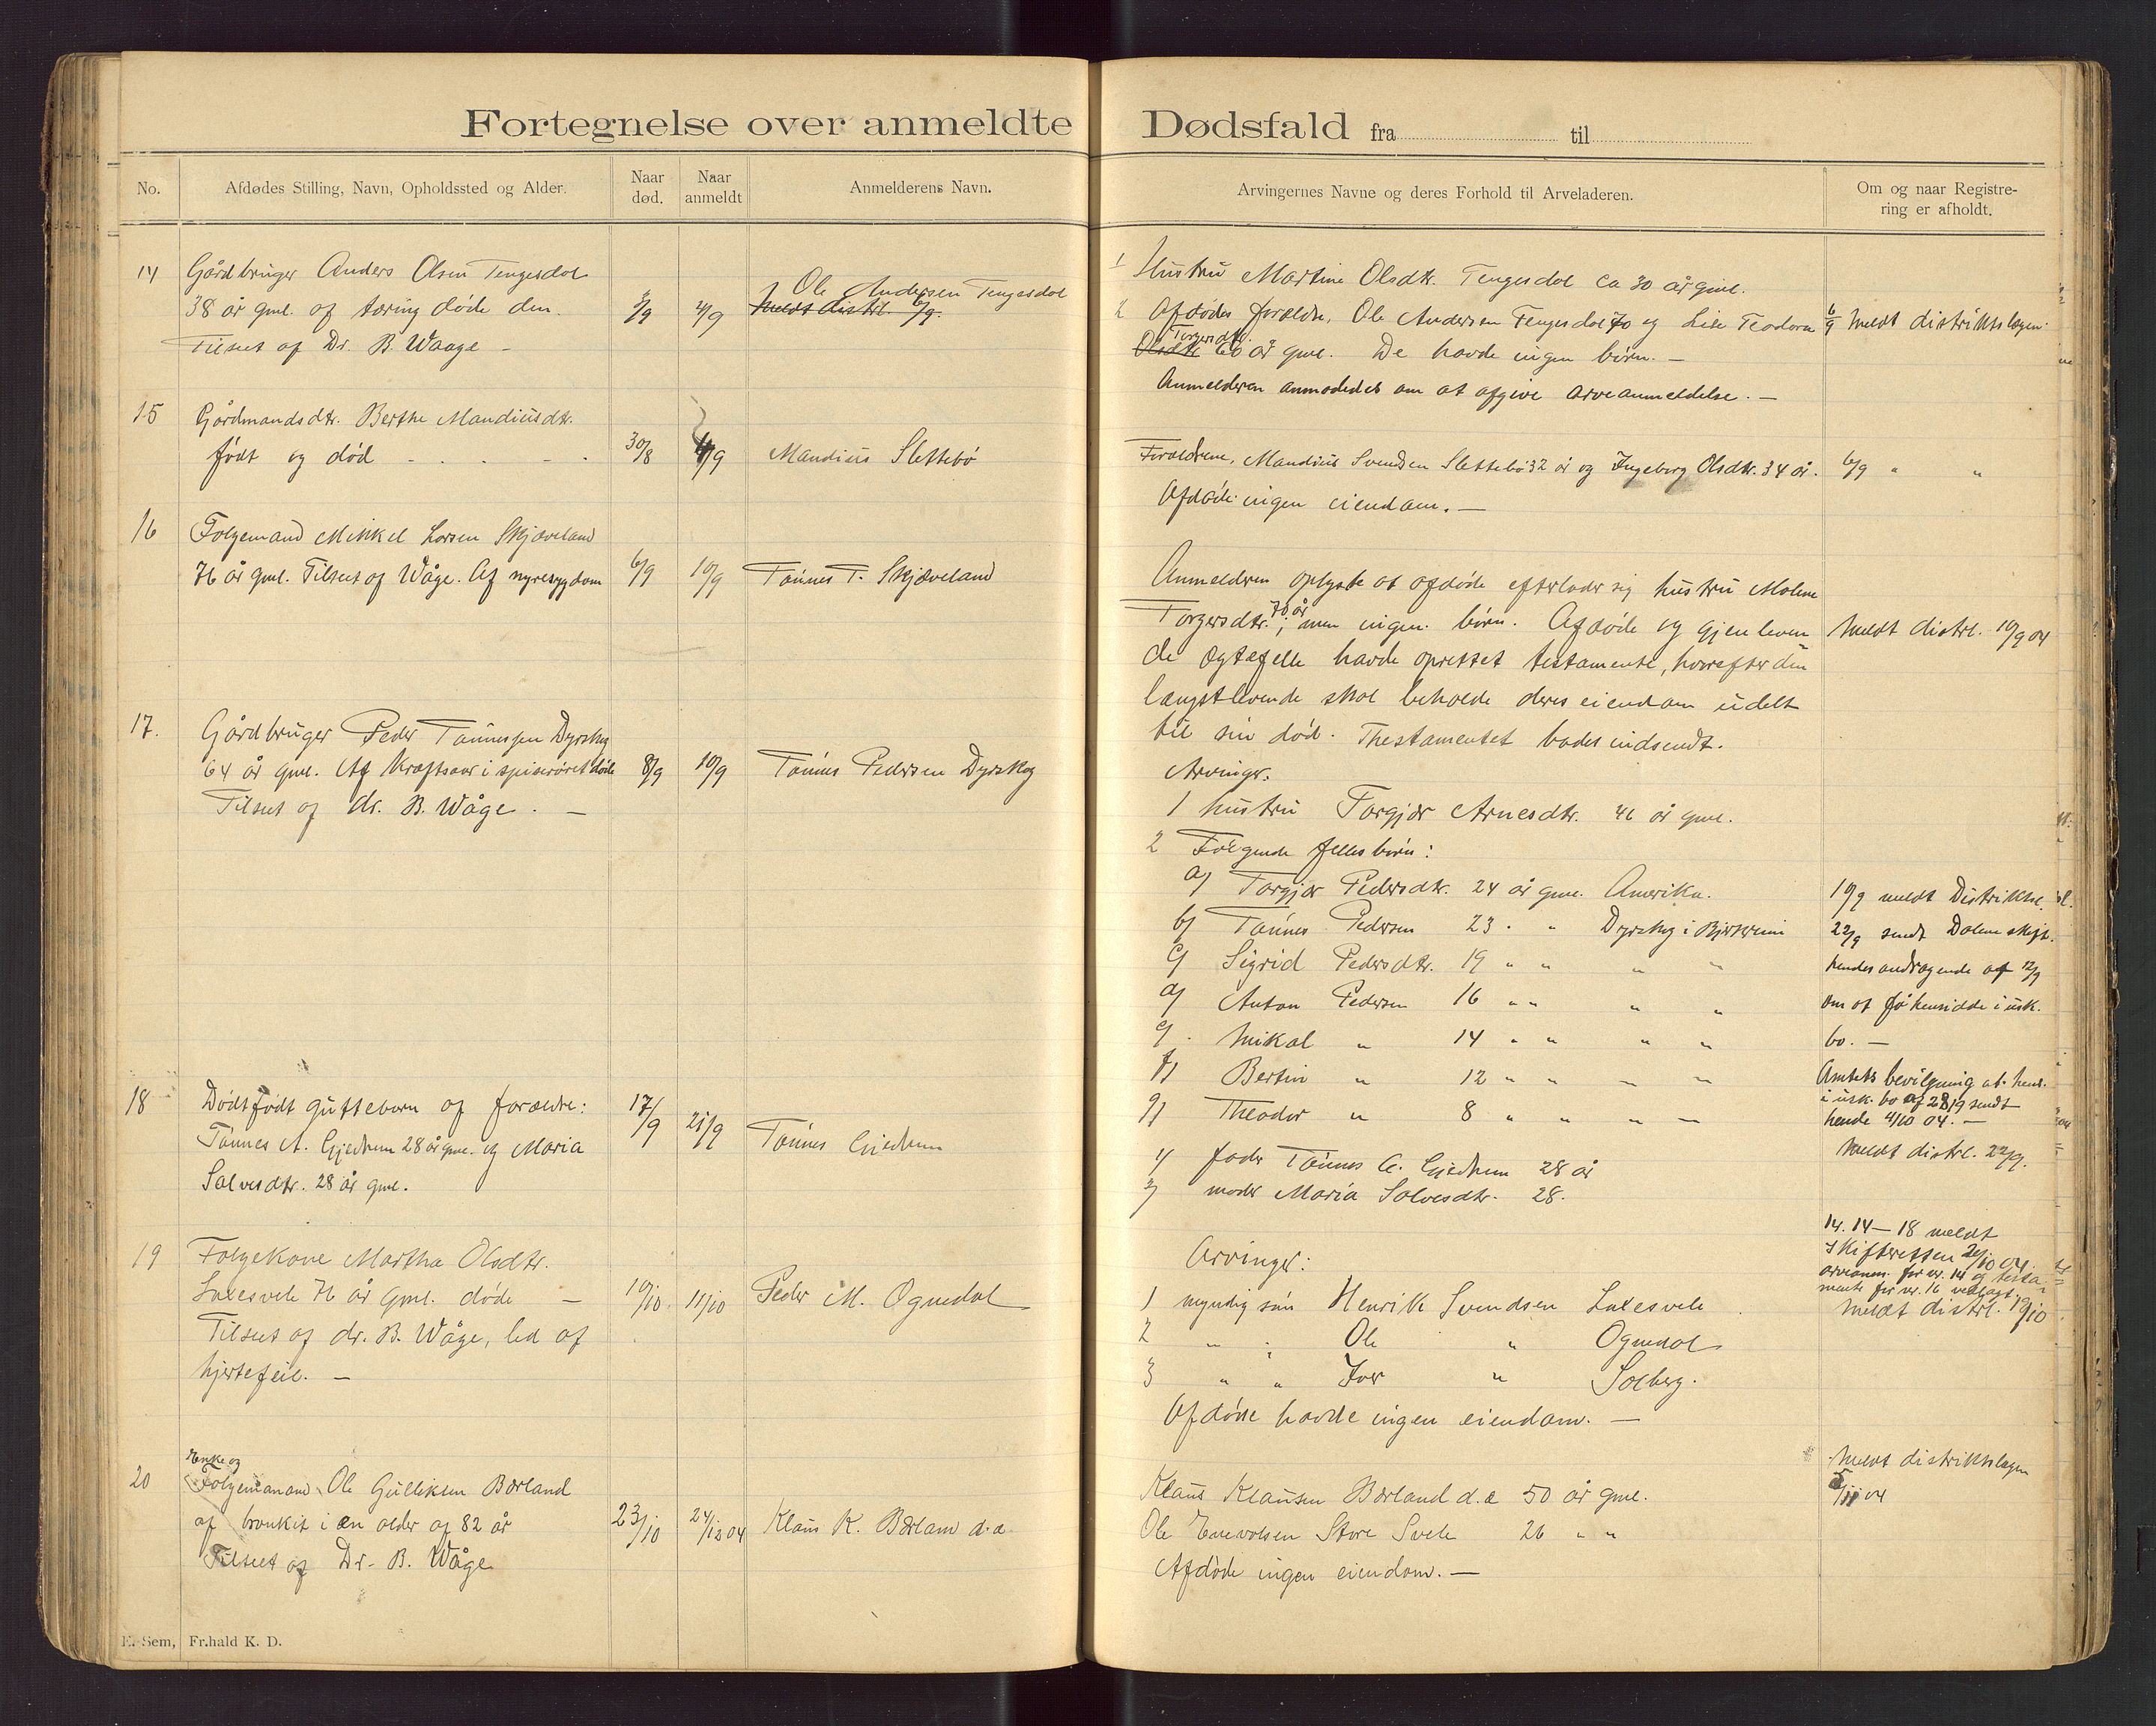 Fortegnelse over anmeldte Dødsfald fra til
No.
Afdødes Stilling, Navn, Opholdssted og Alder.
Naar død.
Naar anmeldt
Anmelderens Navn.
Arvingernes Navne og deres Forhold til Arveladeren.
Om og naar Registre-
ring er afholdt.
14
Gårdbruger Anders Olsen Tengesdal
38 år gml. af tæring døde den
Tilseet af Dr. B. Waage –
4/9
Ole Andersen Tengesdal
Meldt distrl. 6/9.
1 Hustru Martine Olsdtr. Tengesdal ca 30 år gml.
2 Afdødes forældre, Ole Andersen Tengesdal 70 og Lise Teodora
Torgersdtr.
Olsdtr 60 år gml. De havde ingen børn. –
Anmelderen anmodedes om at afgive arveanmeldelse. –
6/9 Meldt distriktslægen.
15
Gårdmandsdtr. Berthe Mandiusdtr.
født og død
30/8
4/9
Mandius Slettebø
Forældrene, Mandius Svendsen Slettebø 32 år og Ingeborg Olsdtr. 34 år.
Afdøde ingen eiendam. –
6/9 " "
16
Folgemand Mikkel Larsen Skjæveland
76 år gml. Tilseet af Wåge. Af nyresygdom
6/9
10/9
Tønnes T. Skjæveland
Anmelderen oplyste at afdøde efterlader sig hustru Malene
Torgersdtr. 70 år, men ingen børn. Afdøde og gjenleven
de ægtefelle havde oprettet testamente, hvorefter den
længstlevende skal beholde deres eiendom udelt
til sin død. Thestamentet bades indsendt.
Meldt distrl. 10/9 04
17.
Gårdbruger Peder Tønnessen Dyrskog
64 år gml. Af Kræftsaar i spiserøret døde
Tilseet af dr. B. Wåge. –
8/9
10/9
Tønnes Pedersen Dyrskog
Arvinger.
1 hustru Torgjær Arnesdtr. 46 år gml.
2 Følgende fellesbørn:
a) Torgjær Pedersdtr. 24 år gml. Amerika.
b) Tønnes Pedersen 23 " " Dyrskog i Bjerkreim
c) Sigrid Pedersdtr. 19 " " " "
d) Anton Pedersen 16 " " " "
e) Mikal " 14 " " " "
f) Bertin " 12 " " " "
g) Theodor " 8 " " " "
10/9 meldt Distriktsl.
22/9 sendt Dalene skifr.
hendes andragende af 12/9
om at få hensidde i usk.
bo. –
Amtets bevilgning at hens.
i usk. bo af 28/9 sendt
hende 4/10 04. –
18
Dødtfødt gutteborn af forældre:
Tønnes A. Gjedrem 28 år gml. og Maria
Salvesdtr. 28 år gml.
17/9
21/9
Tønnes Gjedrem
1) fader Tønnes A. Gjedrem 28 år
2) moder Maria Salvesdtr. 28.
Meldt distrl. 22/9.
nr. 14 – 18 meldt
skifteretten 04.
arveanm. for nr. 14 og testa
mente for nr. 16 vedlagt.
19
Folgekone Martha Olsdtr.
Laxesvele 76 år gml. døde –
Tilseet af dr. B. Wåge, led af
hjertefeil. –
10/10
11/10
Peder M. Ognedal
Arvinger:
1 myndig søn Henrik Svendsen Laxesvele
2 " " Ole " Ognedal
3 " " Iver " Solberg.
Afdøde havde ingen eiendam. –
Meldt distrl. 19/10
20
Enke og
Folgemand Ole Gulliksen Bærland
af bronkit i en alder af 82 år
Tilseet af Dr. B. Wåge
23/10
24/12 04
Klaus K. Bærland d.æ
Klaus Klausen Bærland d.æ 50 år gml.
Ole Enevolsen Store Svele 26 " "
Afdøde ingen eiendom. –
Meldt distriktslægen
5/11 04
E. Sem, Fr.hald K. D.